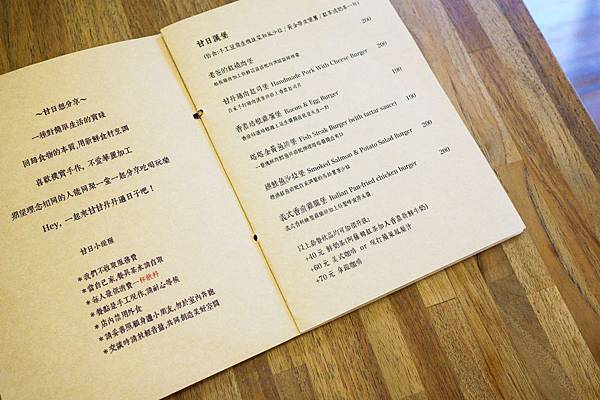 ~甘日想分享~
一種對簡單生活的實踐
回歸食物的本質,用新鮮食材烹調
喜歡樸實手作,不愛華麗加工
期望理念相同的人能同聚一堂一起分享吃喝玩樂
Hey, 一起來甘甘丹丹過日子吧!
甘日小提醒
*我們不收取服務費
*當自己家,餐具茶水請自取
*每人最低消費一杯飲料
*餐點是手工現作,請耐心等候
*店內禁用外食
*請妥善照顧身邊小朋友,勿於室內奔跑
*交談時請放輕音量,共同創造美好空間
甘日漢堡
200
老爸的紅燒肉堡
200
甘丹豬肉起司堡 Handmade Pork With Cheese Burger
190
香煎培根蘿蛋堡 Bacon & Egg Burger
190
塔塔金黃魚排堡 Fish Steak Burger (with tartar sauce)
200
燻鮭魚沙拉堡 Smoked Salmon & Potato Salad Burger
200
義式香煎雞腿堡 Italian Pan-fried chicken burger
以上套餐飲品均可加價升級:
+40元 鮮奶茶(阿薩姆紅茶加入香濃新鮮牛奶)
+60元 美式咖啡 or 現打蘋果鳳梨汁
+70元 拿鐵咖啡